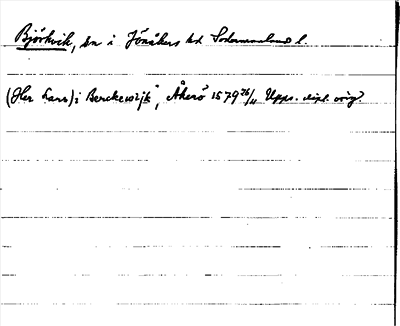 Björkvik, sn i Jönåkers hd Södermanland l.
(Her Lars) i Berckewijk, Åkerö 1579 26/11 Upps. dipl. orig.